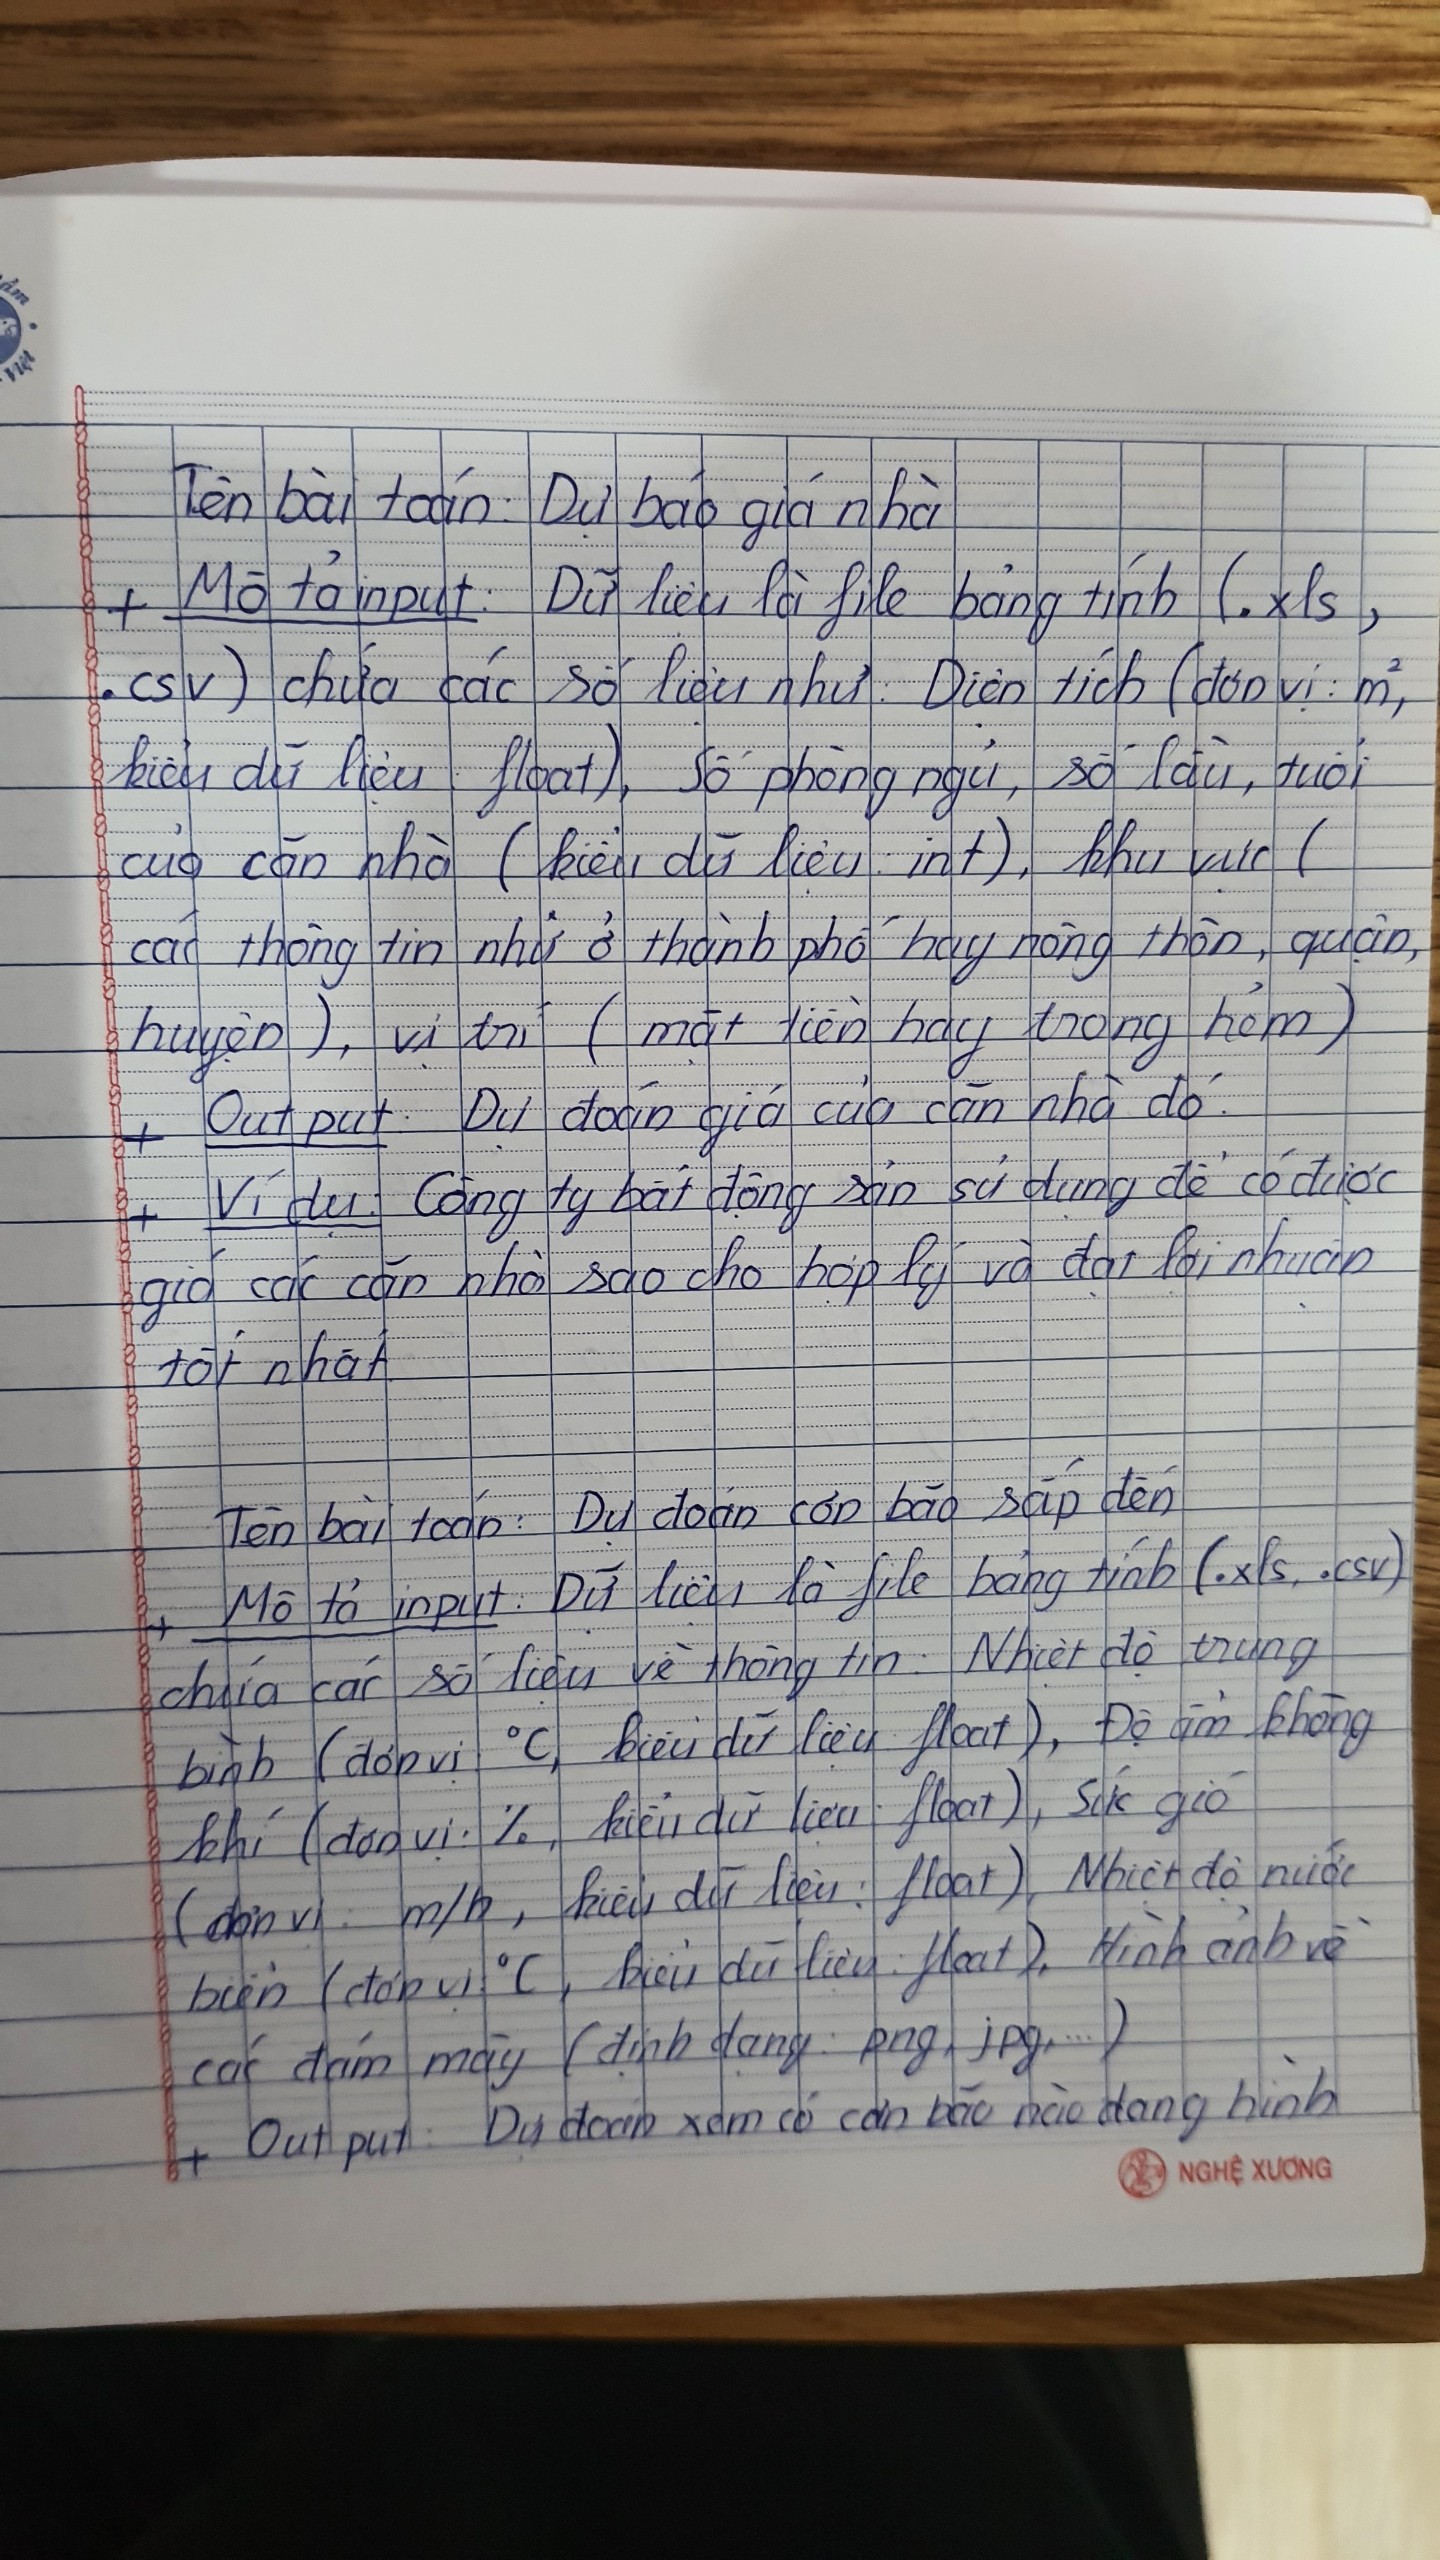 Tên bài toán: Dự báo giá nhà
+ Mô tả input: Dữ liệu là file bảng tính (.xls,
.csv) chứa các số liệu như: Diện tích (đơn vị: m²,
kiểu dữ liệu: float), Số phòng ngủ, số lầu, tuổi
của căn nhà (kiểu dữ liệu: int), khu vực (
các thông tin như ở thành phố hay nông thôn, quận,
huyện), vị trí (mặt tiền hay trong hẻm)
+ Output: Dự đoán giá của căn nhà đó.
+ Ví dụ: Công ty bất động sản sử dụng để có được
giá các căn nhà sao cho hợp lý và đạt lợi nhuận
tốt nhất
Tên bài toán: Dự đoán cơn bão sắp đến
+ Mô tả input: Dữ liệu là file bảng tính (.xls, .csv)
chứa các số liệu về thông tin: Nhiệt độ trung
bình (đơn vị °C, kiểu dữ liệu: float), Độ ẩm không
khí (đơn vị: %, kiểu dữ liệu: float), Sức gió
(đơn vị: m/h, kiểu dữ liệu: float), Nhiệt độ nước
biển (đơn vị: °C, kiểu dữ liệu: float), Hình ảnh về
các đám mây (định dạng: png, jpg,...)
+ Output: Dự đoán xem có cơn bão nào đang hình
NGHỆ XƯƠNG